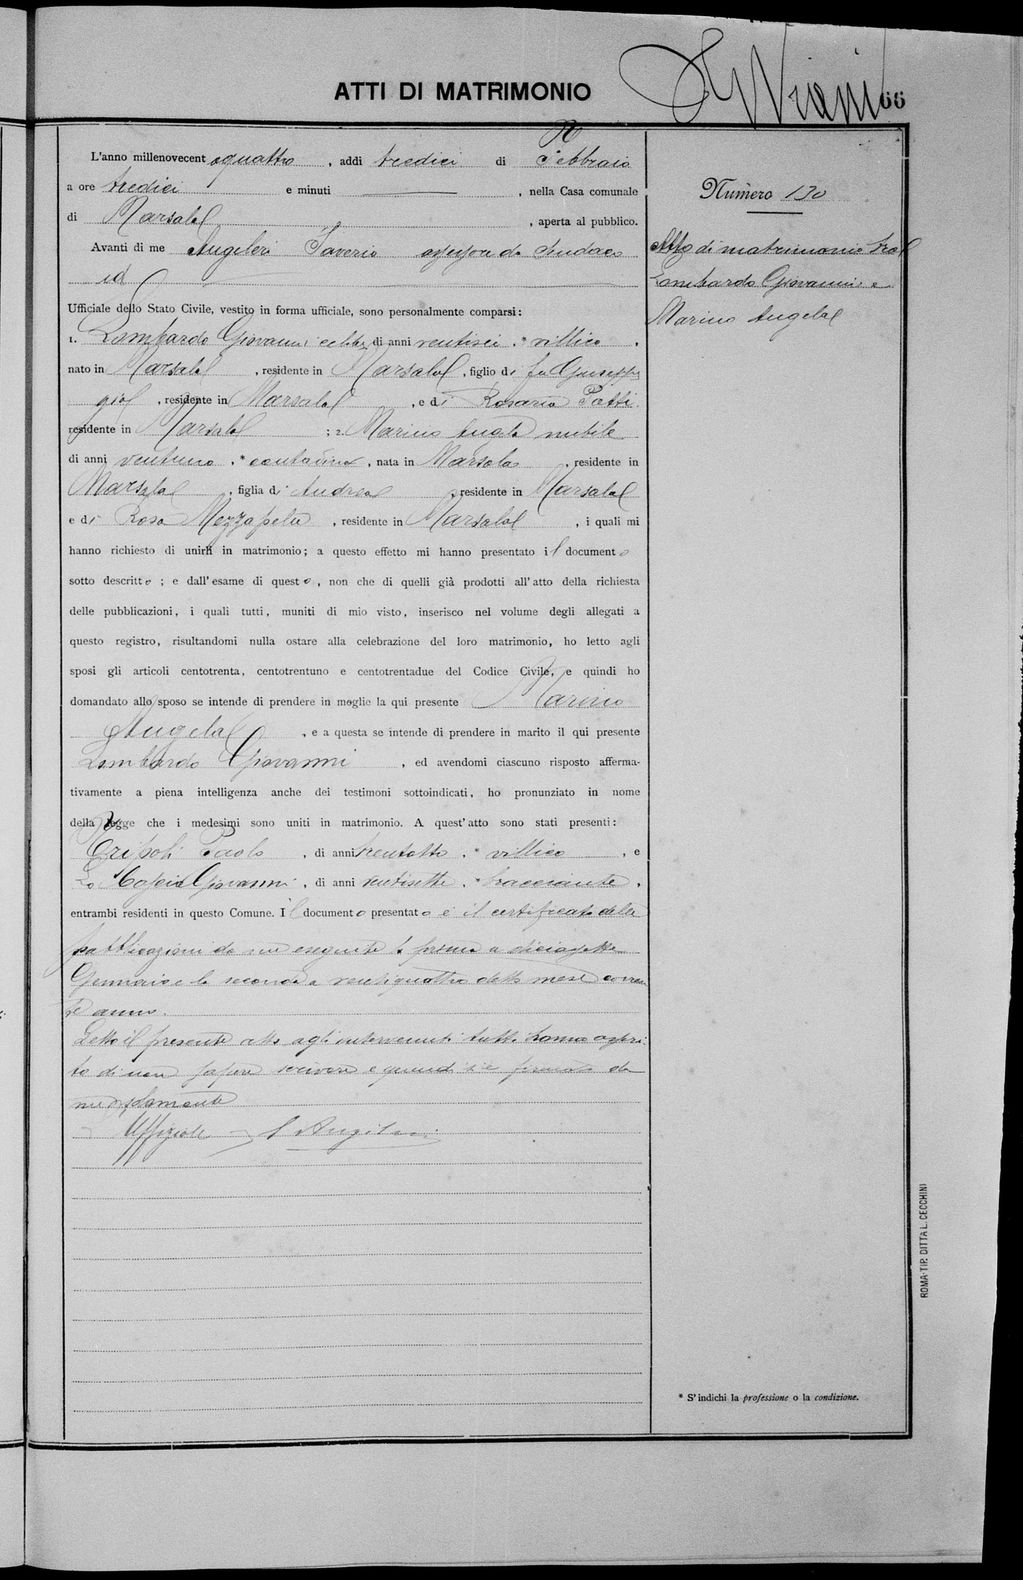 ATTI DI MATRIMONIO
66
L'anno millenovecentoquattro, addì tredici di Febbraio
a ore tredici e minuti ———, nella Casa comunale
di Marsala, aperta al pubblico.
Avanti di me Angileri Saverio assessore da Sindaco
Ufficiale dello Stato Civile, vestito in forma ufficiale, sono personalmente comparsi:
1. Lombardo Giovanni celibe, di anni ventisei, * villico,
nato in Marsala, residente in Marsala, figlio di fu Giuseppe
, residente in Marsala, e di Rosaria Patti
residente in Marsala; 2. Marino Angela nubile
di anni ventuno, * contadina, nata in Marsala, residente in
Marsala, figlia di Andrea, residente in Marsala
e di Rosa Mezzapelle, residente in Marsala, i quali mi
hanno richiesto di unirli in matrimonio; a questo effetto mi hanno presentato il documento
sotto descritto; e dall'esame di questo, non che di quelli già prodotti all'atto della richiesta
delle pubblicazioni, i quali tutti, muniti di mio visto, inserisco nel volume degli allegati a
questo registro, risultandomi nulla ostare alla celebrazione del loro matrimonio, ho letto agli
sposi gli articoli centotrenta, centotrentuno e centotrentadue del Codice Civile, e quindi ho
domandato allo sposo se intende di prendere in moglie la qui presente Marino
Angela, e a questa se intende di prendere in marito il qui presente
Lombardo Giovanni, ed avendomi ciascuno risposto afferma-
tivamente a piena intelligenza anche dei testimoni sottoindicati, ho pronunziato in nome
della legge che i medesimi sono uniti in matrimonio. A quest'atto sono stati presenti:
Tripoli Paolo, di anni trentotto, * villico, e
Lo Giovanni, di anni ventisette, * bracciante,
entrambi residenti in questo Comune. Il documento presentato è il certificato delle
pubblicazioni da me eseguite la prima a diciassette
Gennaio e la seconda a ventiquattro detto mese corren
te anno.
Letto il presente atto agli intervenuti tutti hanno asseri
to di non sapere scrivere e quindi si è firmato da
me solamente
Uffiziale S Angileri
Numero 130
Atto di matrimonio tra
Lombardo Giovanni e
Marino Angela
* S'indichi la professione o la condizione.
ROMA-TIP. DITTA L. CECCHINI